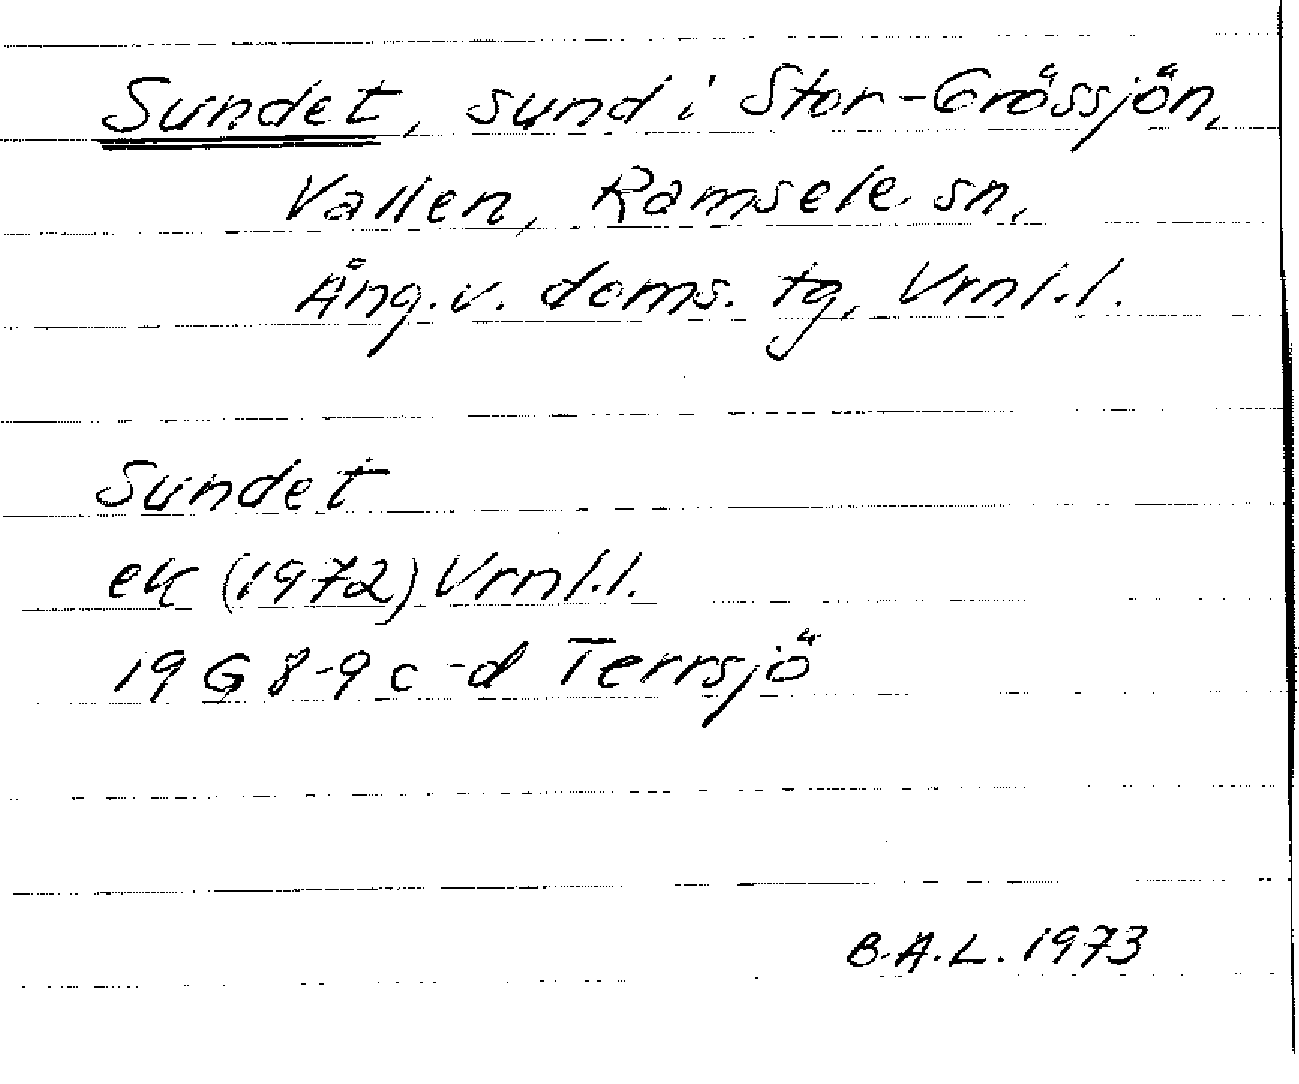 Sundet, sund i Stor-Grössjön,
Vallen, Ramsele sn,
Ång. v. doms. tg, Vrnl.l.
Sundet
ek (1972) Vrnl.l.
19 G 8-9 c-d Terrsjö
B.A.L. 1973